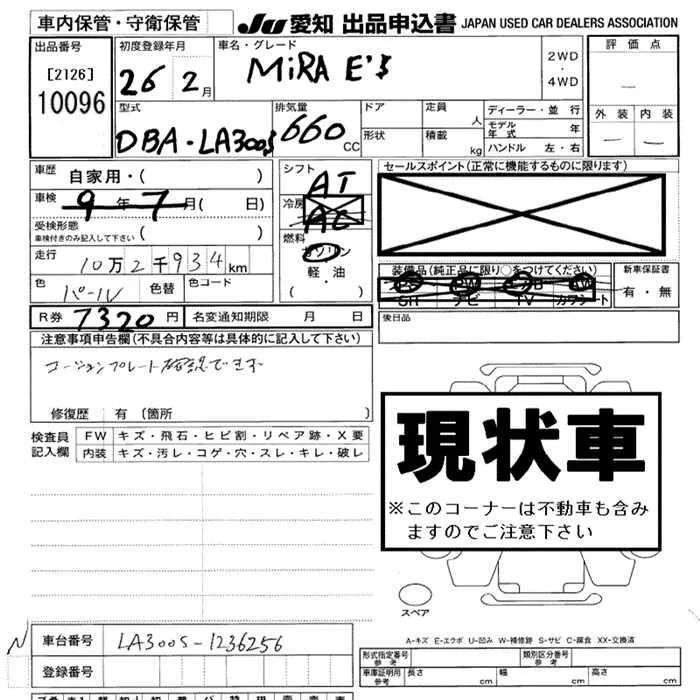 車内保管・守衛保管
JU 愛知 出品申込書 JAPAN USED CAR DEALERS ASSOCIATION
出品番号 初度登録年月 車名・グレード 評価点
[2126] 26 2月 MiRA E's 2WD・4WD
10096
型式 排気量 ドア 定員 人 ディーラー・並行
DBA-LA300S 660CC 形状 積載 kg モデル年式 年
ハンドル 左・右
外装 内装
車歴 自家用・( )
車検 9年7月( 日)
受検形態 ( )
車検付きのみ記入して下さい
走行 10万2千934km
色 パール 色替 色コード
R券 7320円 名変通知期限 月 日
シフト AT
冷房 AC
燃料 ガソリン
軽・油
(・)
セールスポイント(正常に機能するものに限ります)
装備品(純正品に限り○をつけてください) 新車保証書
PS PW AW 有・無
SH ナビ TV カワシート
後日品
注意事項申告欄(不具合内容等は具体的に記入して下さい)
コーションプレート確認できず
修復歴 有 (箇所 )
検査員記入欄 FW キズ・飛石・ヒビ割・リペア跡・X要
内装 キズ・汚レ・コゲ・穴・スレ・キレ・破レ
現状車
※このコーナーは不動車も含み
ますのでご注意下さい
スペア
A-キズ E-エクボ U-凹み W-補修跡 S-サビ C-腐食 XX-交換済
N 車台番号 LA300S-1236256
登録番号
形式指定番号 参考 類別区分番号 参考
車庫証明用 参考 長さ cm 幅 cm 高さ cm